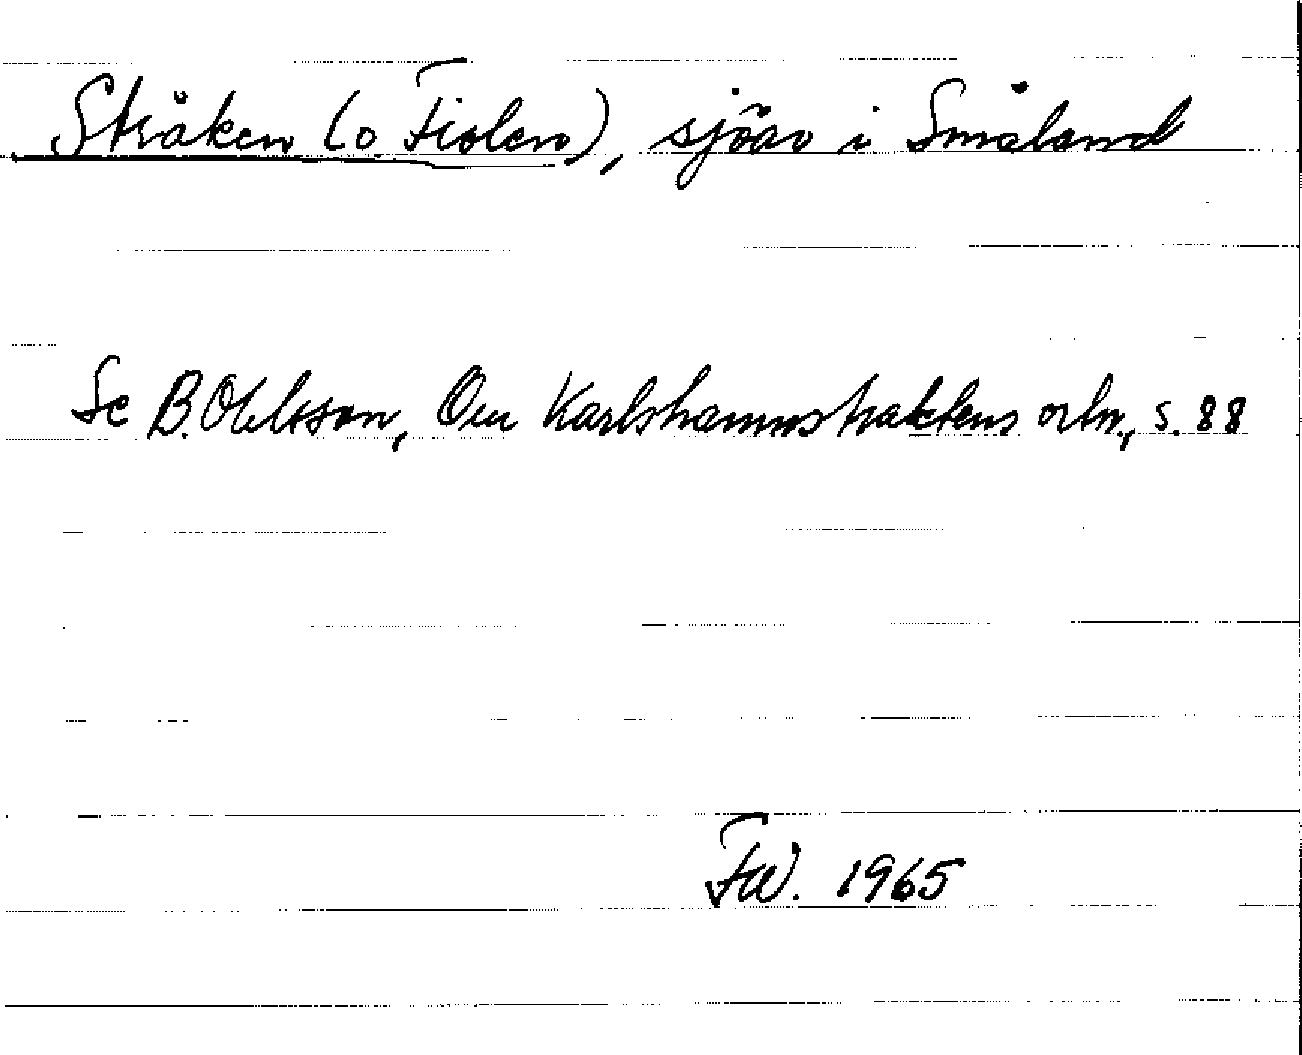 Stråken (o. Fiolen), sjöar i Småland
Se B. Ohlsson, Om Karlshamnstraktens ortn., s. 88
FW. 1965